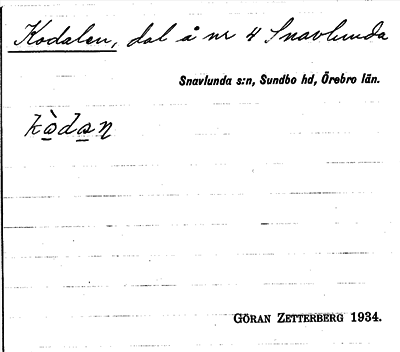 Kodalen, dal å nr 4 Snavlunda
Snavlunda s:n, Sundbo hd, Örebro län.
kò̲da̲n
GÖRAN ZETTERBERG 1934.